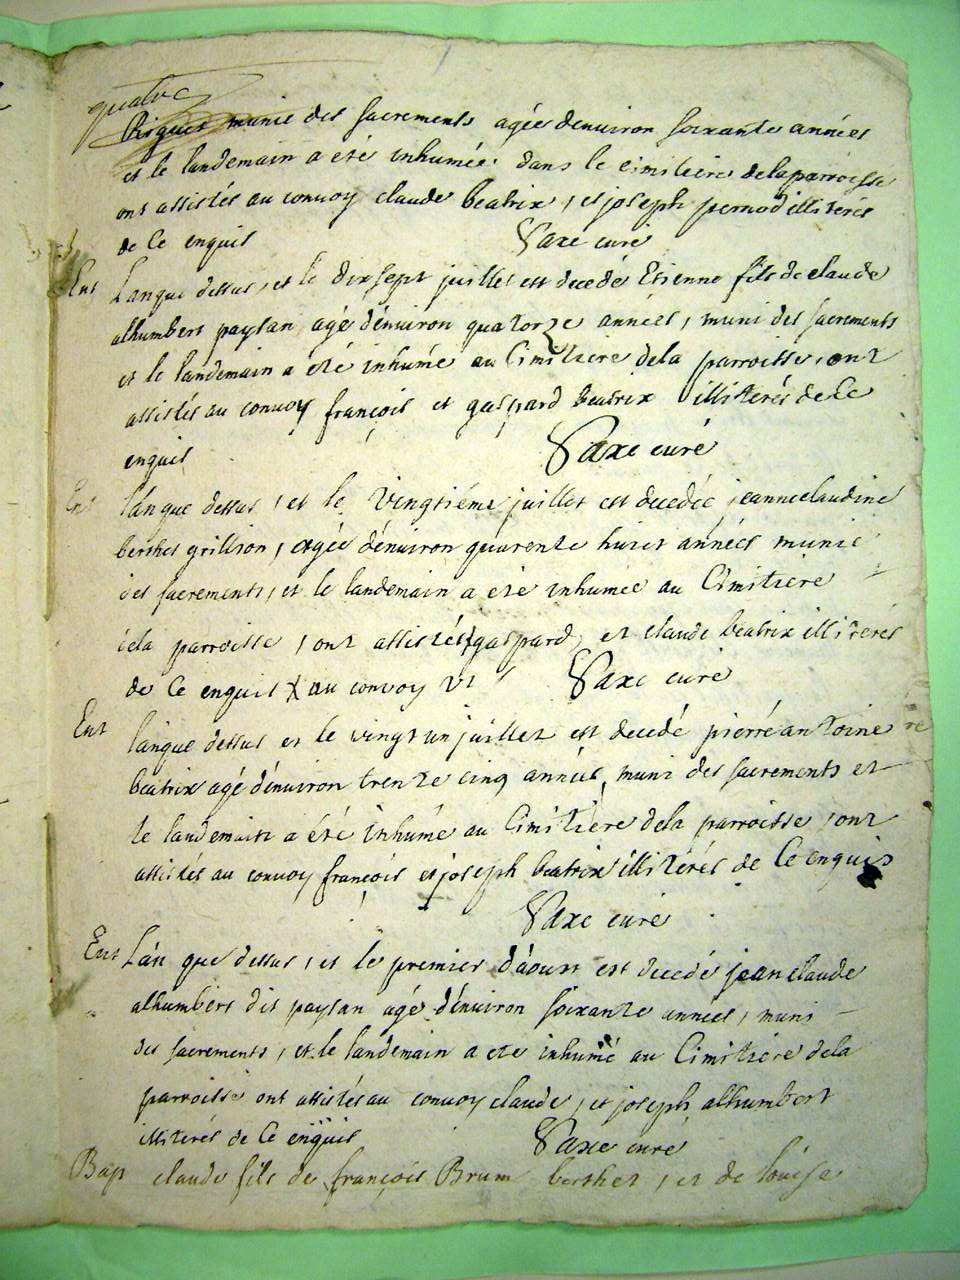 quatre
munie des sacrements agée denuiron soixante années
et le landemain a eté inhumée dans le cimitiere de la parroisse
ont assistés au convoy claude beatrix, et joseph pernod illiterés
de ce enquis Vaxe curé
Ent L'an que dessus, et le dix sept juillet est decedé Etienne fils de claude
alhumbert paysan agé d'enuiron quatorze années, muni des sacrements
et le landemain a eté inhumé au Cimitiere de la parroisse, ont
assistés au convoy françois et gaspard beatrix illiterés de Ce
enquis Vaxe curé
Ent l'an que dessus, et le vingtiéme juillet est decedée jeanne claudine
berthet grillion, agée d'enuiron quarente huict années munie
des sacrements, et le landemain a eté inhumée au Cimitiere
de la parroisse, ont assistés gaspard, et claude beatrix illiterés
de Ce enquis au convoy Vaxe curé
Ent l'an que dessus et le vingt un juillet est decedé pierre antoine
beatrix agé d'enuiron trente cinq années, muni des sacrements et
le landemain a été inhumé au Cimitiere de la parroisse, ont
assistés au convoy françois et joseph beatrix illiterés de Ce enquis
Vaxe curé
Ent L'an que dessus, et le premier d'aoust est decedé jean claude
alhumbert dit paysan agé d'enuiron soixante années, muni
des sacrements, et le landemain a eté inhumé au Cimitiere de la
parroisse ont assistés au convoy claude, et joseph alhumbert
illiterés de Ce enquis Vaxe curé
Bap claude fils de françois Brun berthet, et de louise